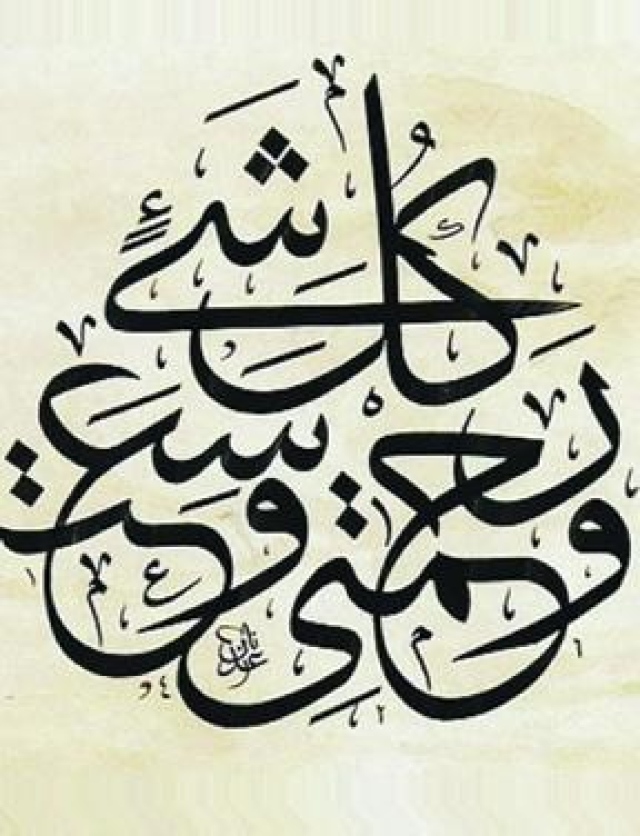 وَرَحْمَتِي وَسِعَتْ
كُلَّ شَيْءٍ